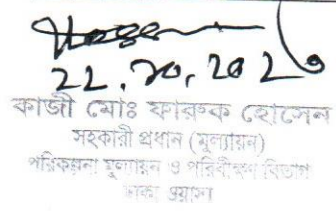 22.10.202
কাজী মোঃ ফারুক হোসেন
সহকারী প্রধান (মূল্যায়ন)
পরিকল্পনা মূল্যায়ন ও পরিবীক্ষণ বিভাগ
ঢাকা ওয়াসা